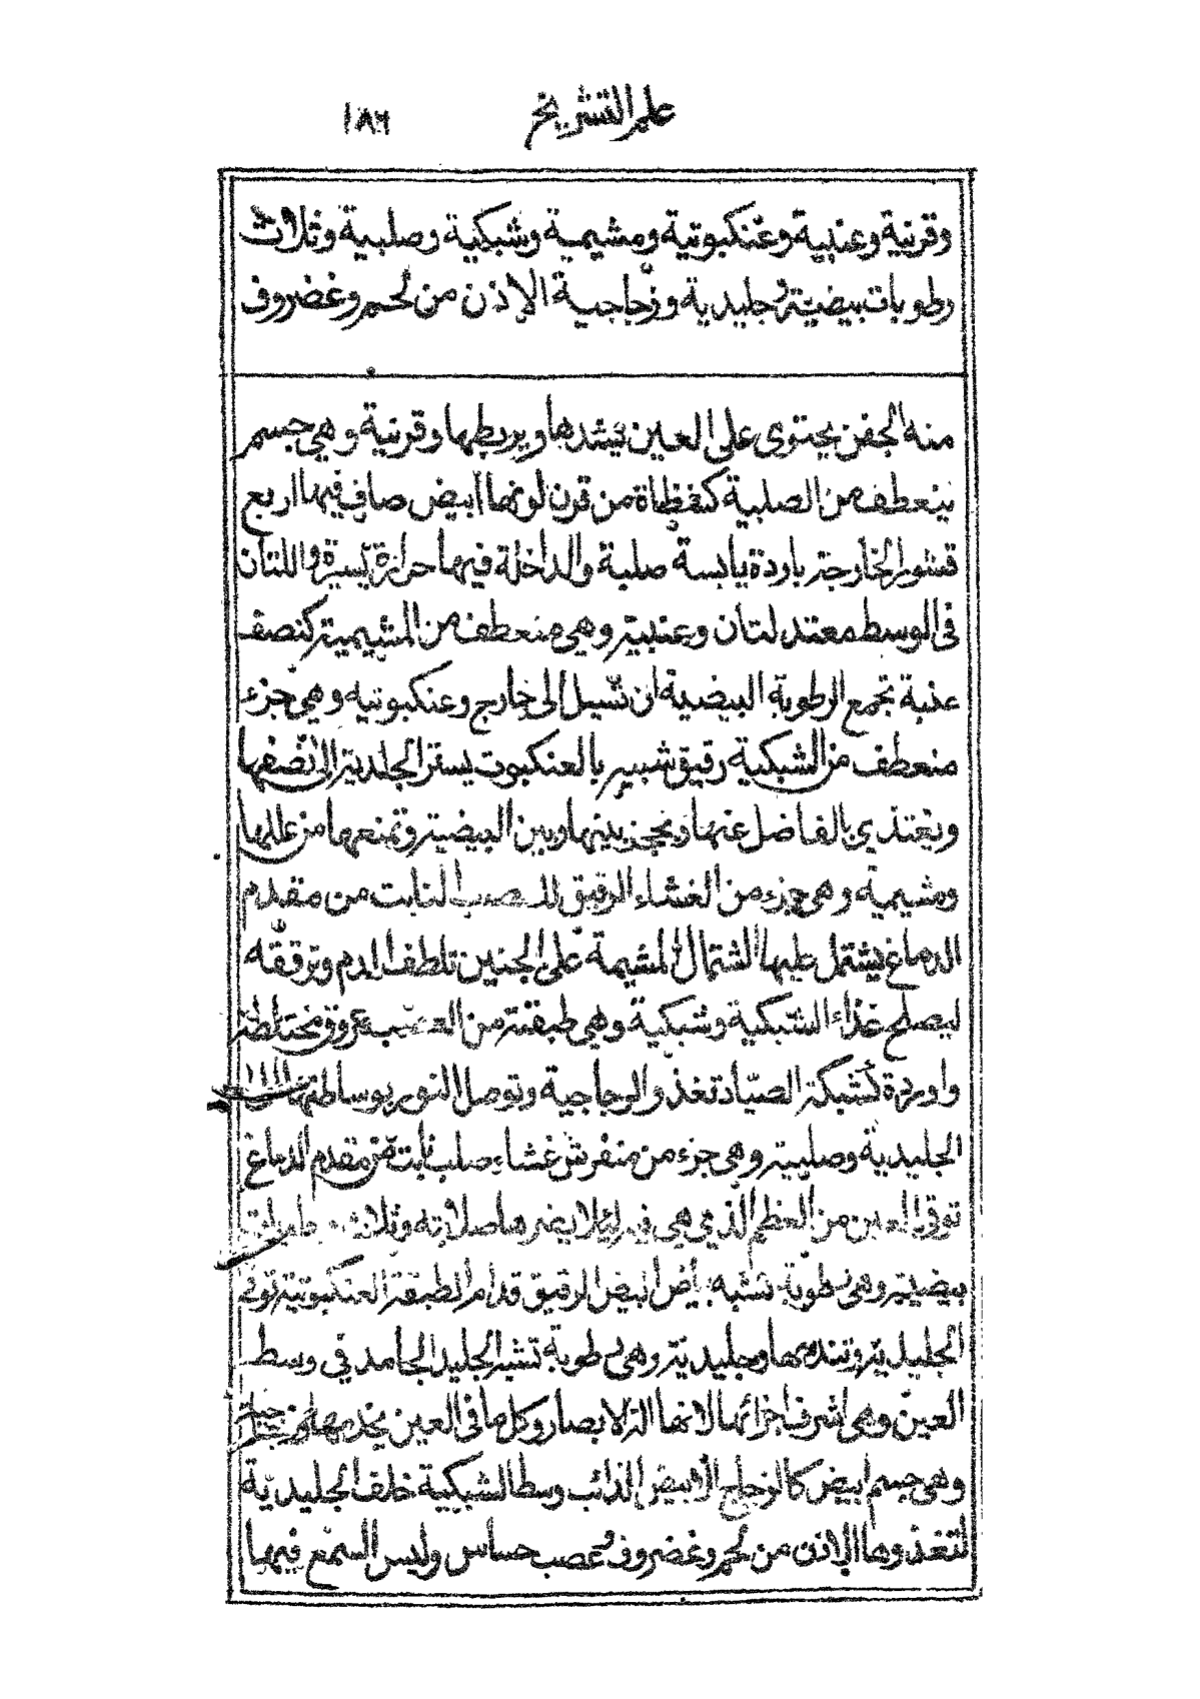 علم التشريح ١٨٦
وقرنية وعنبية وعنكبوتية ومشيمية وشبكية وصلبية وثلاث
رطوبات بيضية وجليدية وزجاجية الاذن من لحم وغضروف
منه الجفن يحتوى على العين يشدها ويربطها وقرنية وهي جسم
ينعطف من الصلبية من قرن لونها ابيض صاف فيها اربع
قشور الخارجة باردة يابسة صلبة والداخلة فيها حرارة يسيرة واللتان
في الوسط معتدلتان وعنبية وهي منعطف من المشيمية كنصف
عنبة تجمع الرطوبة البيضية ان تسيل الى خارج وعنكبوتيه وهي جزء
منعطف من الشبكية رقيق شبيه بالعنكبوت يستر الجلدية الى نصفها
ويغتذي بالفاضل عنها ويحجز بينها وبين البيضية وتمنعها من عللها
ومشيمية وهي جزء من الغشاء الرقيق النابت من مقدم
الدماغ يشتمل عليها اشتمال المشيمة على الجنين تلطف الدم وترققه
ليصلح غذاء الشبكية وشبكية وهي طبقة من العصب عروق مختلطة
واوردة كشبكة الصياد تغذو الزجاجية وتوصل النور بوساطتها الى
الجليدية وصلبية وهي جزء من منفرش غشاء صلب نابت من مقدم الدماغ
توقى العين من العظم الذي هي فيه لئلا يضرها صلابته وثلاث رطوبات
بيضية وهي رطوبة تشبه بياض البيض الرقيق قدام الطبقة العنكبوتية توقي
الجليدية وتنديها وجليدية وهي رطوبة تشبه الجليد الجامد في وسط
العين وهي اشرف اجزائها لانها الة الابصار وكل ما في العين يخدمها وزجاجية
وهي جسم ابيض كالزجاج الابيض الذائب وسط الشبكية خلف الجليدية
لتغذوها الاذن من لحم وغضروف وعصب حساس وليس السمع فيها